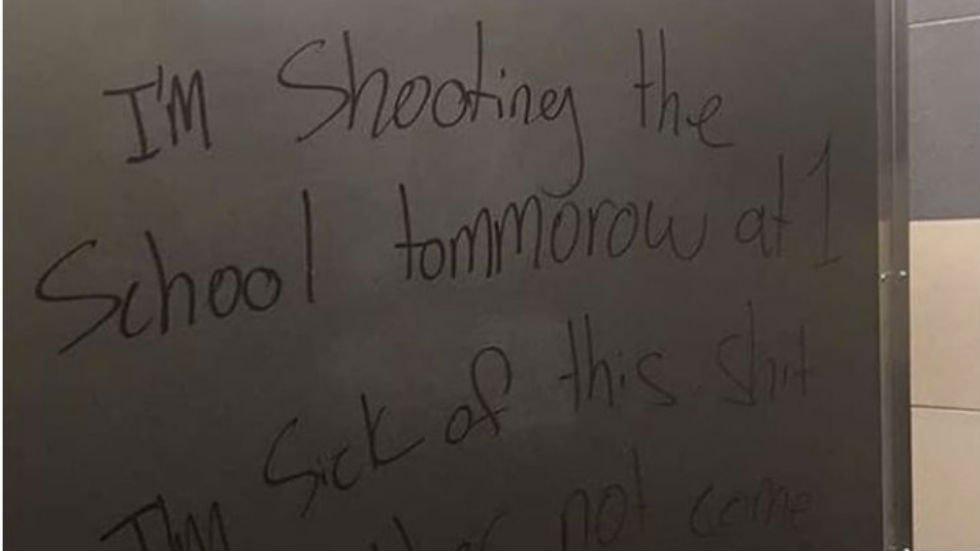 I'M Shooting the
School tommorow at 1
Sick of this shit
I'm not come